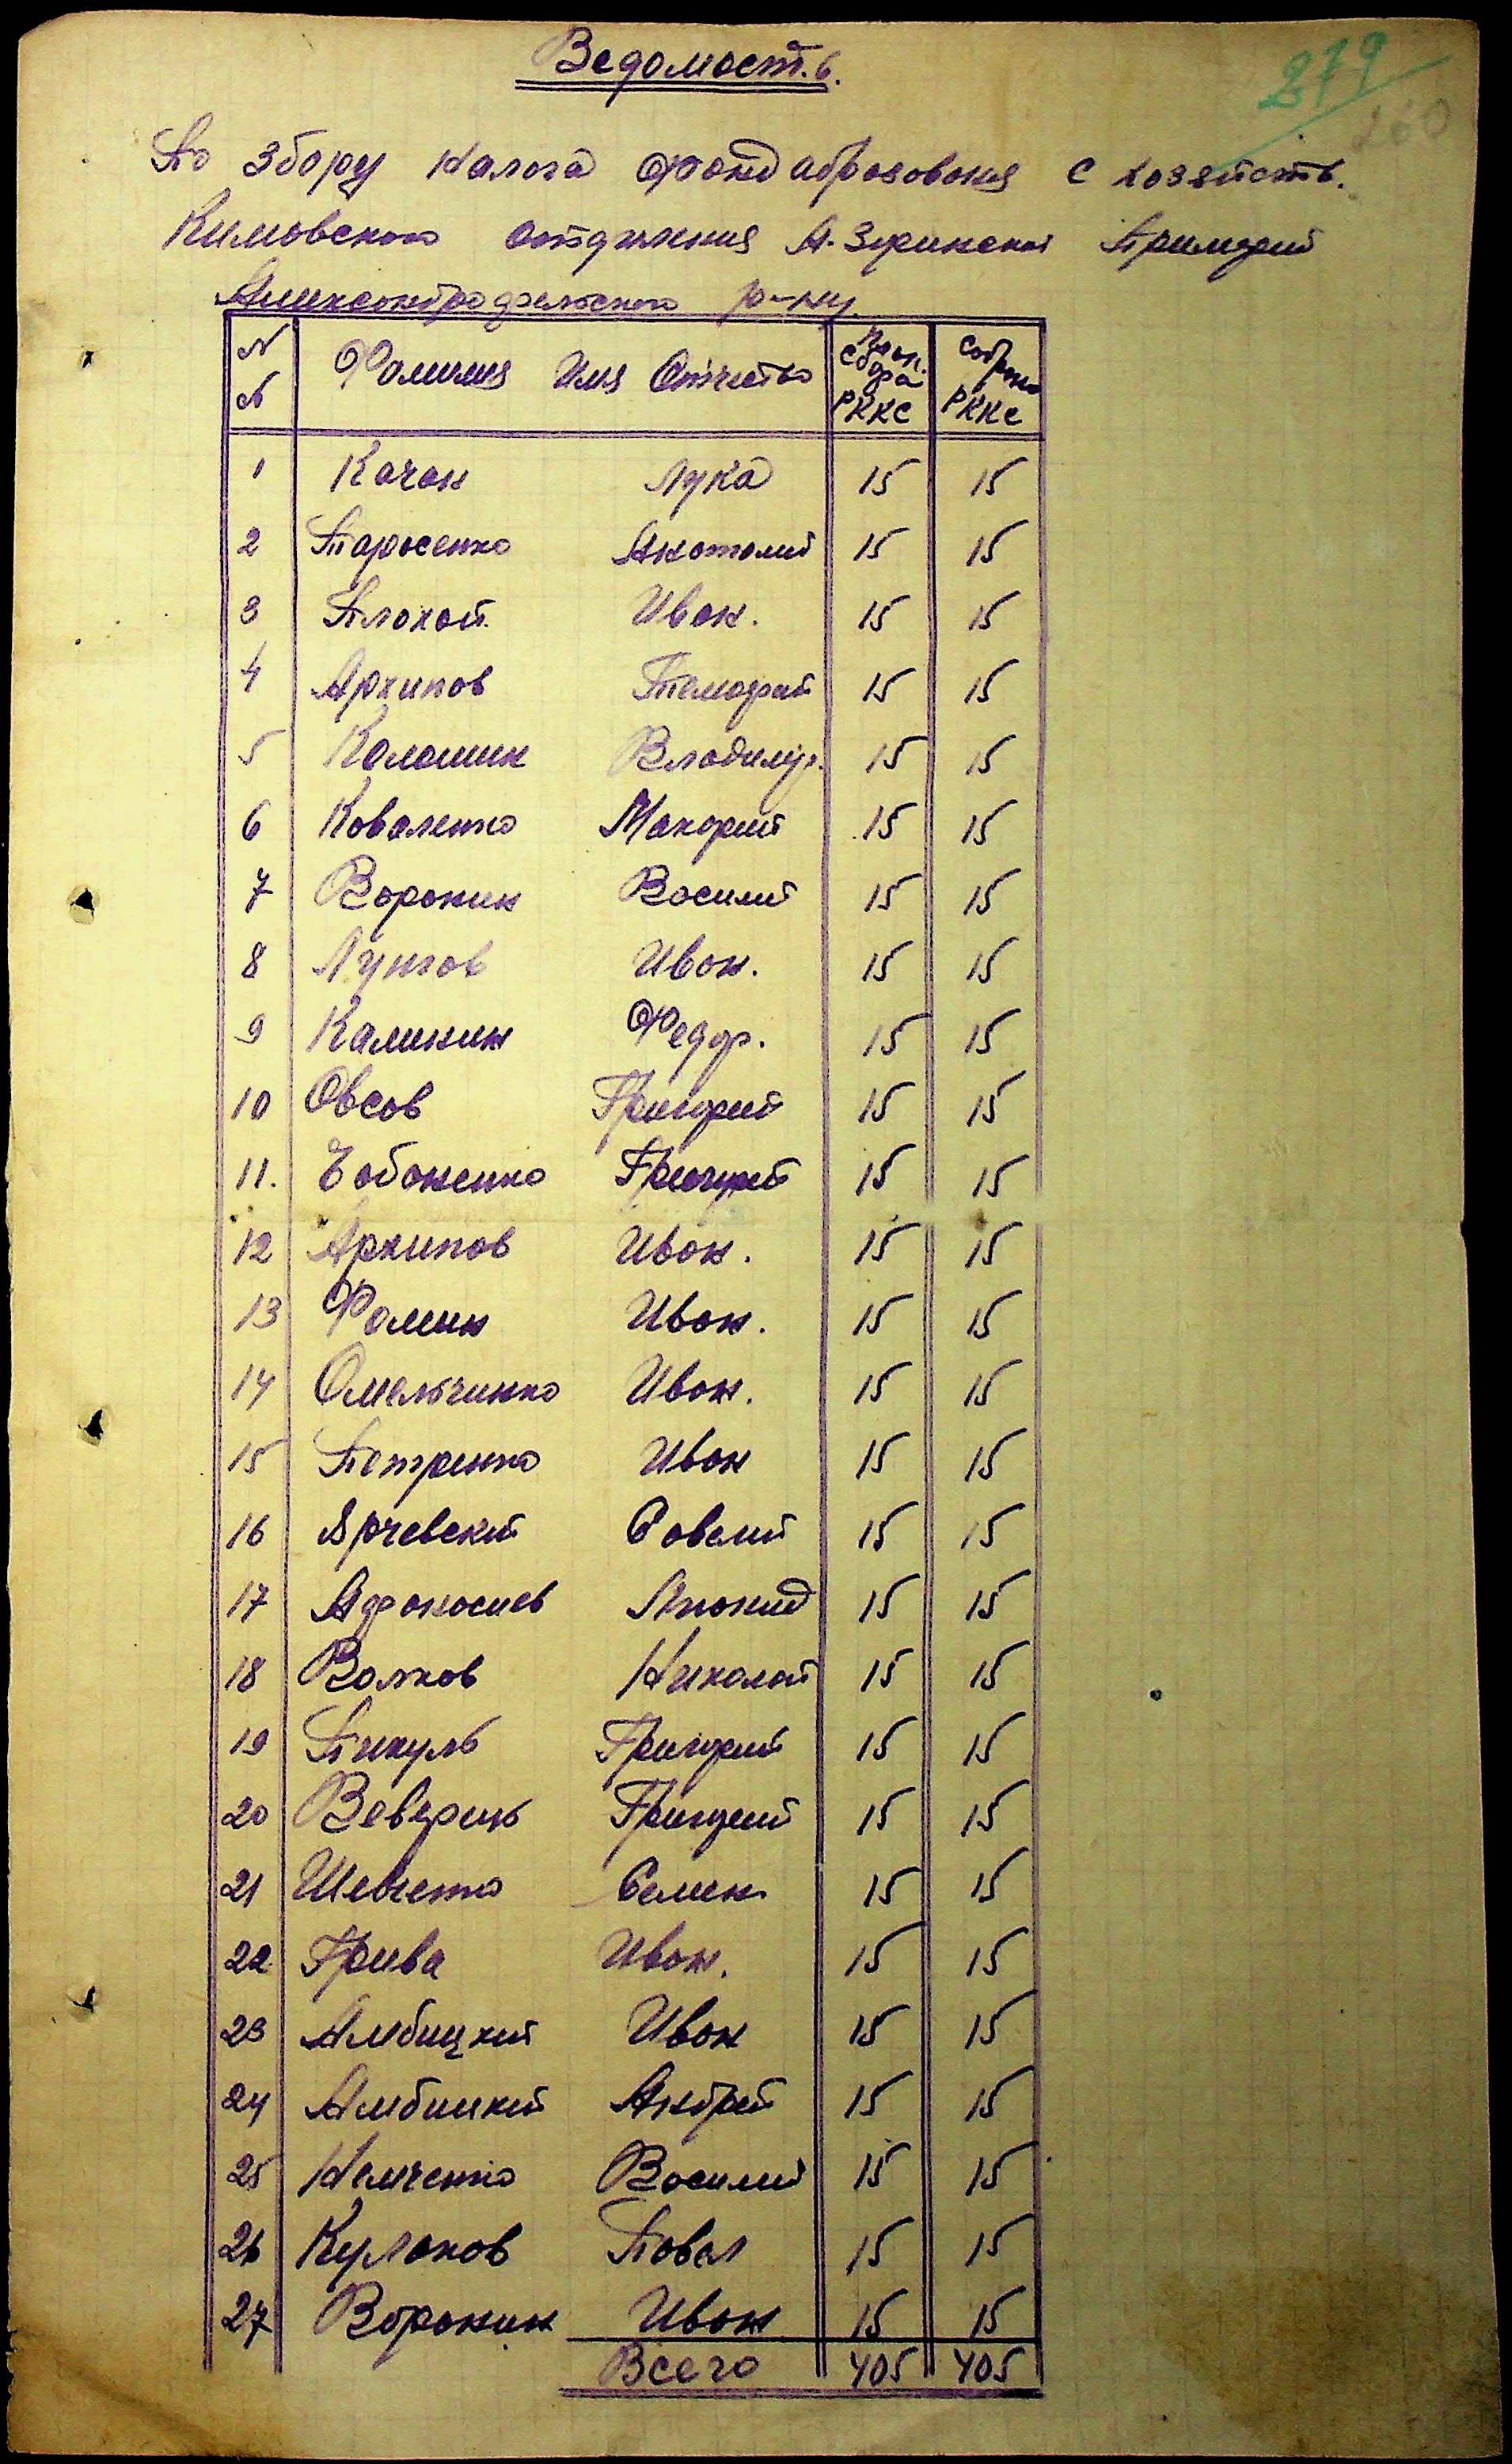 Ведомость.
279
260
По збору налога фонд аброзования с хозяйств.
Кимовского отдиления А. Зеринской Примэрий
Александродфельского р-ну.
№ № Фамилия Имя Отчество План. сбора РККС Собрано РККС
1 Качан Лука 15 15
2 Тарасенко Анатолий 15 15
3 Плохой. Иван. 15 15
4 Архипов Темофей 15 15
5 Калашник Владимир. 15 15
6 Коваленко Макорий 15 15
7 Воронин Василий 15 15
8 Лунгов Иван. 15 15
9 Калинин Федор. 15 15
10 Овсов Григорий 15 15
11. Чобоненко Григорий 15 15
12 Архипов Иван. 15 15
13 Фомин Иван. 15 15
14 Омельчинко Иван. 15 15
15 Петренко Иван 15 15
16 Ярчевский Совелий 15 15
17 Афонасиев Лионид 15 15
18 Волков Николай 15 15
19 Пикуль Григорий 15 15
20 Веверица Григорий 15 15
21 Шевченко Семен. 15 15
22 Грива Иван. 15 15
23 Амбицкий Иван 15 15
24 Амбицкий Андрей 15 15
25 Немченко Василий 15 15
26 Кулаков Повел 15 15
27 Воронин Иван 15 15
Всего 405 405